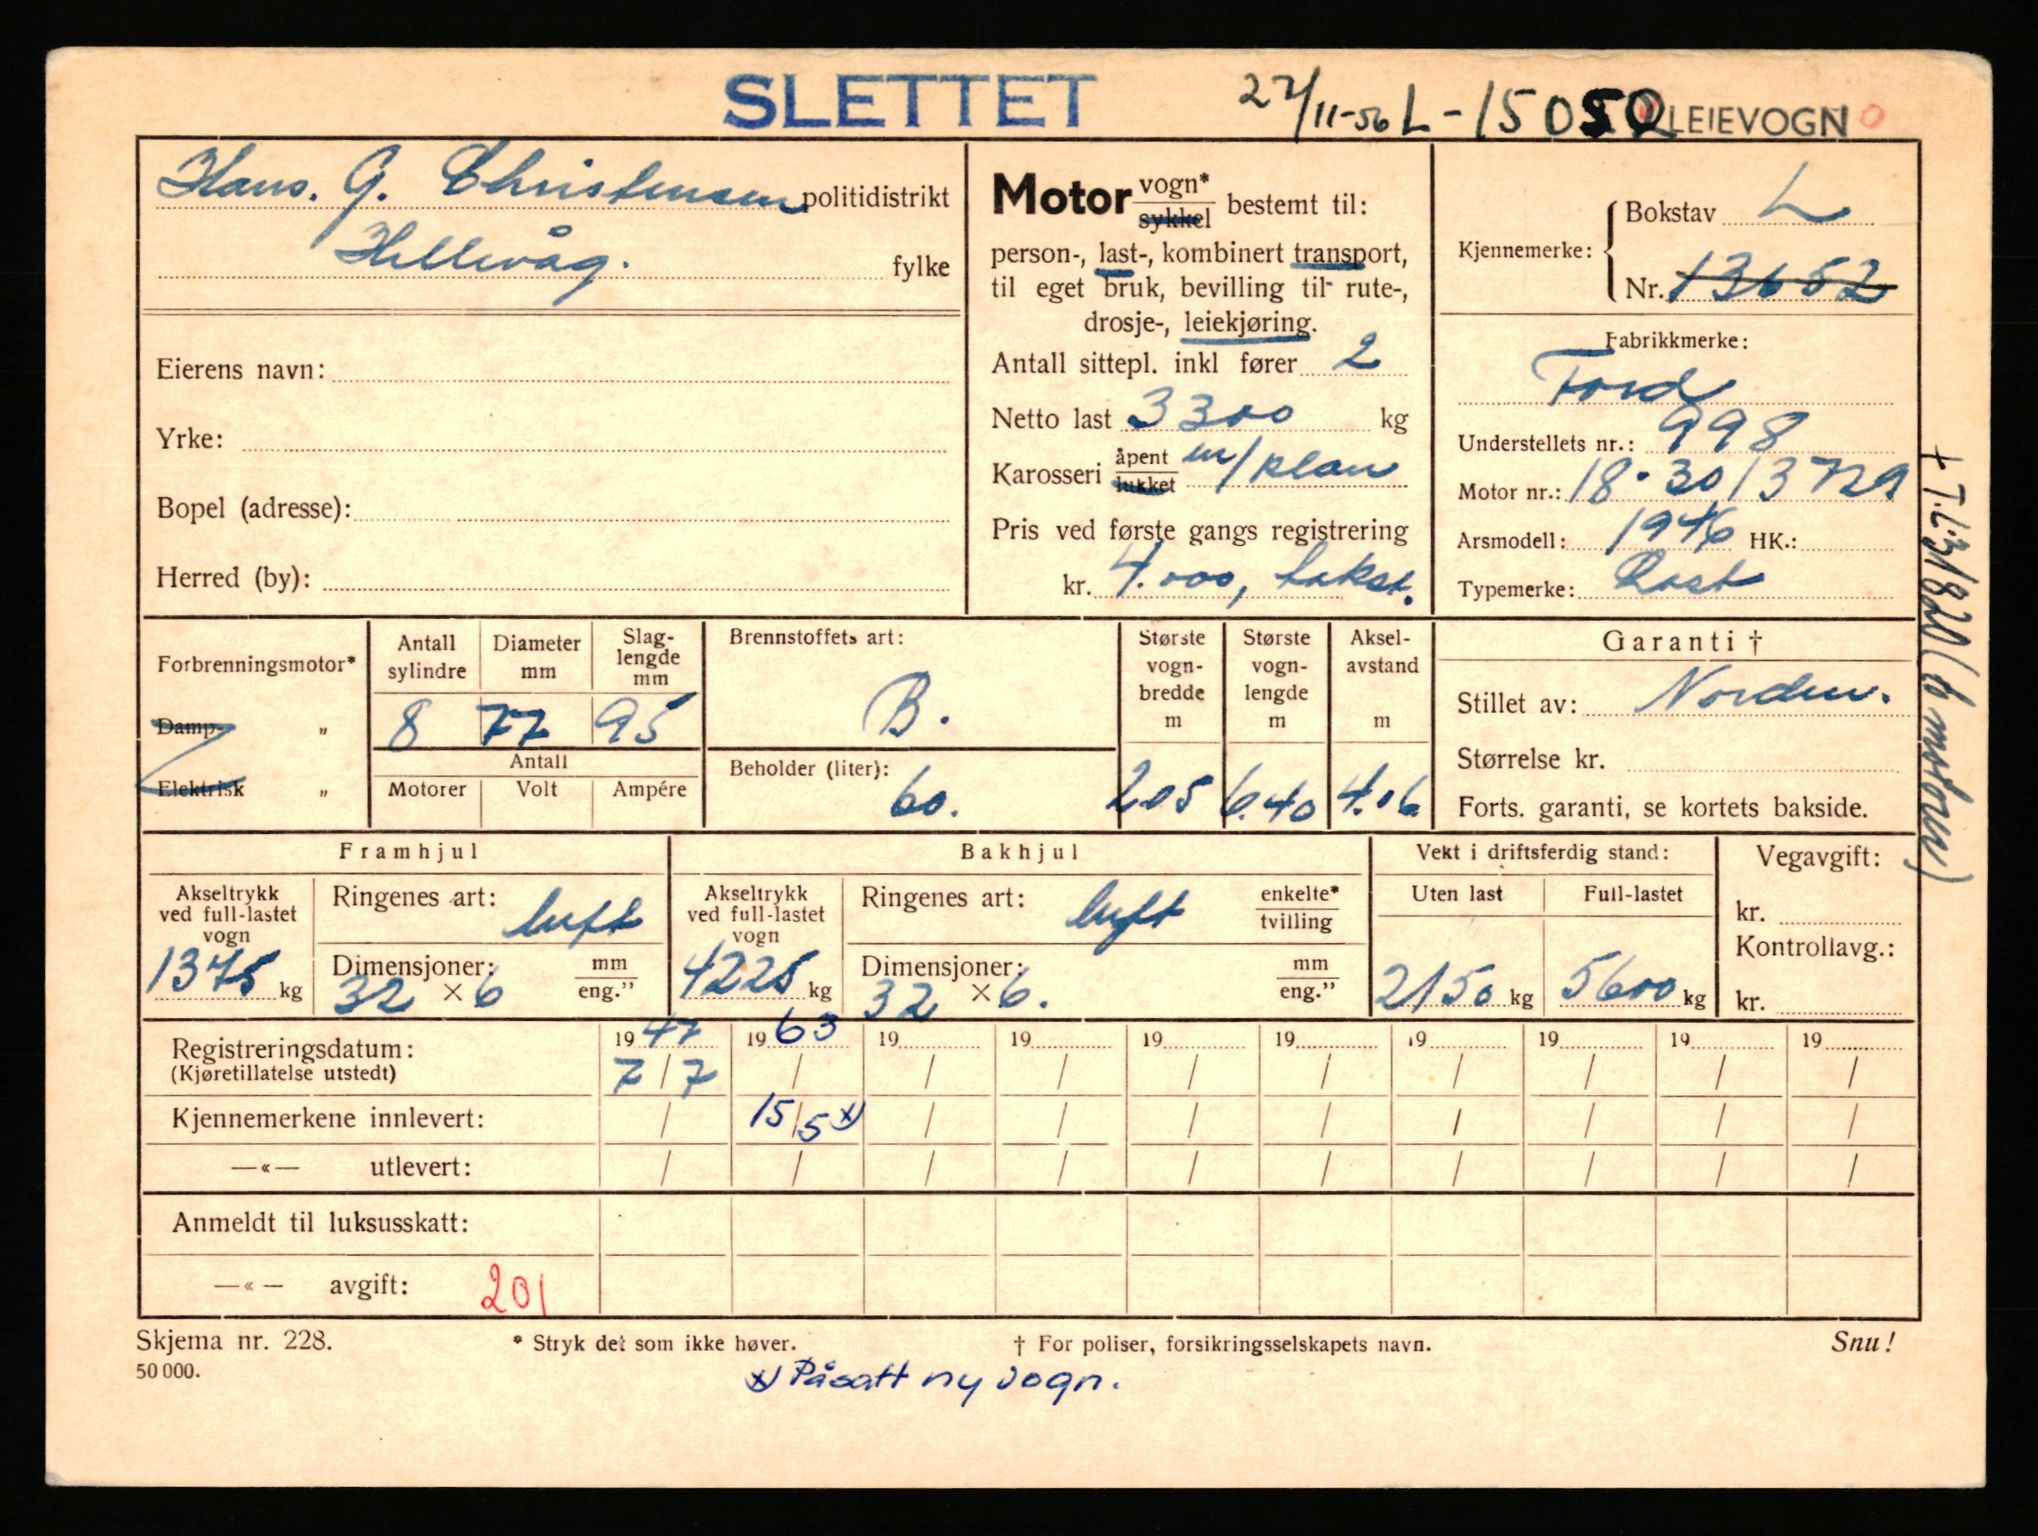 SLETTET 27/11-56 L-15050 LEIEVOGN
Hans. G. Christensen politidistrikt
Hellevåg. fylke
Eierens navn:
Yrke:
Bopel (adresse):
Herred (by):
Motor vogn* sykkel bestemt til:
person-, last-, kombinert transport,
til eget bruk, bevilling til rute-,
drosje-, leiekjøring.
Antall sittepl. inkl fører 2
Netto last 3300 kg
Karosseri åpent lukket m/plan
Pris ved første gangs registrering
kr. 4.000, takst.
Kjennemerke: Bokstav L
Nr. 13652
Fabrikkmerke:
Ford
Understellets nr.: 998
Motor nr.: 18-3013729
Arsmodell: 1946 HK.:
Typemerke: Last
+ T.L.31820 (b motoren)
Forbrenningsmotor*
Damp- „
Elektrisk „
Antall sylindre
Diameter mm
Slag-lengde mm
8 77 95
Antall
Motorer Volt Ampére
Brennstoffets art:
B.
Beholder (liter):
60.
Største vogn-bredde m
2.05
Største vogn-lengde m
6.40
Aksel-avstand m
4.06
Garanti †
Stillet av: Norden.
Størrelse kr.
Forts. garanti, se kortets bakside.
Framhjul
Akseltrykk ved full-lastet vogn
1375 kg
Ringenes art: luft
Dimensjoner: mm eng.”
32 × 6
Bakhjul
Akseltrykk ved full-lastet vogn
4225 kg
Ringenes art: luft enkelte* tvilling
Dimensjoner: mm eng.”
32 × 6.
Vekt i driftsferdig stand:
Uten last Full-lastet
2150 kg 5600 kg
Vegavgift:
kr.
Kontrollavg.:
kr.
Registreringsdatum: 1947 1963 19 19 19 19 19 19 19 19
(Kjøretillatelse utstedt) 7/7 / / / / / / / / /
Kjennemerkene innlevert: / 15/5 x) / / / / / / / /
—«— utlevert: / / / / / / / / / /
Anmeldt til luksusskatt:
—«— avgift: 201
Skjema nr. 228. * Stryk det som ikke høver. † For poliser, forsikringsselskapets navn. Snu!
50 000.
x) Påsatt ny vogn.